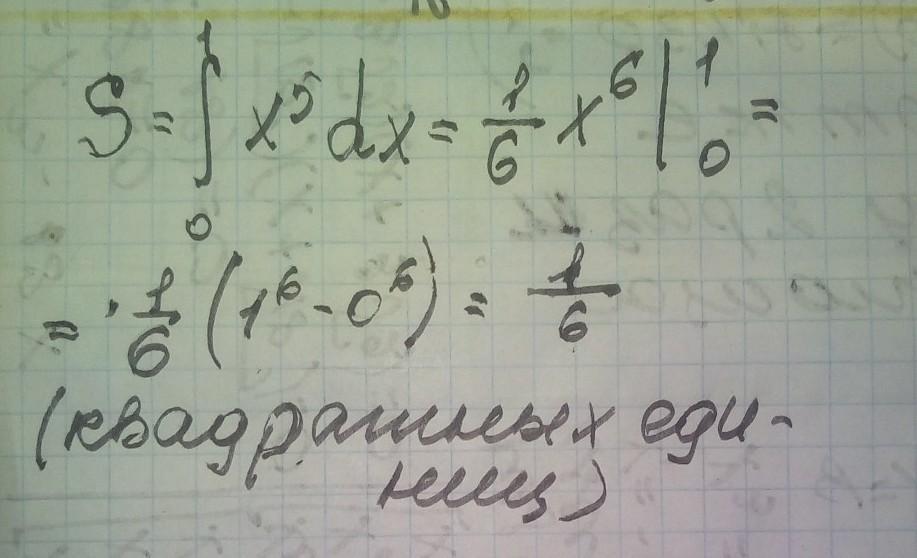 S = ∫₀¹ x⁵ dx = 1/6 x⁶ |₀¹ =
= 1/6 (1⁶ - 0⁶) = 1/6
(квадратных еди-
ниц)